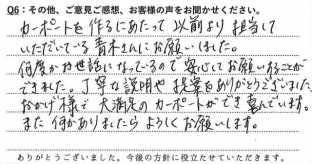 Q6：その他、ご意見ご感想、お客様の声をお聞かせください。
カーポートを作るにあたって以前より担当して
いただいている青木さんにお願いしました。
何度かお世話になっているので安心してお願いすることが
できました。丁寧な説明や提案をありがとうございました
おかげ様で大満足のカーポートができ喜んでいます。
また何かありましたらよろしくお願いします。
ありがとうございました。今後の方針に役立たせていただきます。